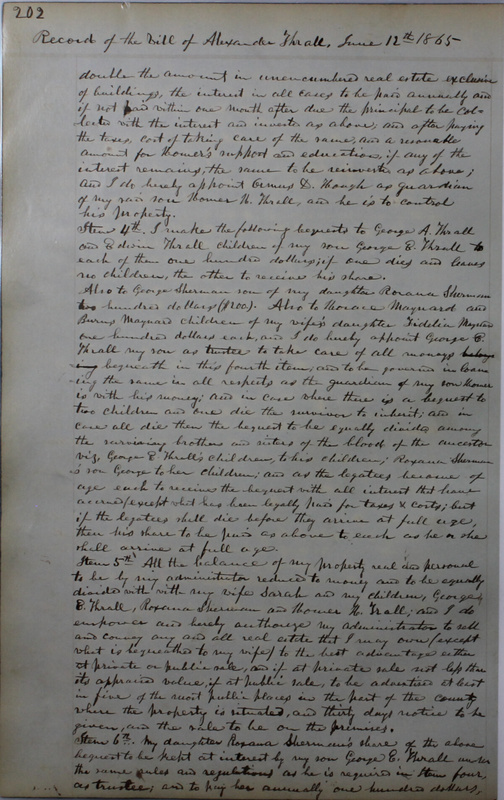 202
Record of the Will of Alexander Thrall, June 12th 1865
double the amount in unencumbered real estate exclusive
of buildings, the interest in all cases to be paid annually and
if not paid within one month after due the principal to be col-
lected with the interest and invested as above, and after paying
the taxes, cost of taking care of the same, and a reasonable
amount for Homer's support and education, if any of the
interest remains, the same to be reinvested as above;
and I do hereby appoint D. Hough as guardian
of my said son Homer H. Thrall, and he is to control
his property.
Item 4th. I make the following bequests to George A. Thrall
and Edwin Thrall children of my son George E. Thrall to
each of them one hundred dollars; if one dies and leaves
no children, the other to receive his share.
Also to George Sherman son of my daughter Roxana Sherman
two hundred dollars ($200). Also to Horace Maynard and
Burns Maynard children of my wife's daughter Fidelia Maynard
one hundred dollars each, and I do hereby appoint George E.
Thrall my son as trustee to take care of all moneys
bequeath in this fourth item, and to be governed in loan-
ing the same in all respects as the guardian of my son Homer
is with his money; and in case where there is a bequest to
two children and one die the survivor to inherit; and in
case all die then the bequest to be equally divided among
the surviving brothers and sisters of the blood of the ancestor
viz, George E. Thrall's children, to his children; Roxana Sherman
's son George to her children; and as the legatees become of
age each to receive the bequest with all interest that have
accrued (except what has been legally paid for taxes & costs; but
if the legatees shall die before they arrive at full age,
then his share to be paid as above to each as he or she
shall arrive at full age.
Item 5th All the balance of my property real and personal
to be by my administrator reduced to money and to be equally
divided with with my wife Sarah and my children, George
E. Thrall, Roxana Sherman and Homer H. Trall; and I do
empower and hereby authorize my administrator to sell
and convey any and all real estate that I may own (except
what is bequeathed to my wife) to the best advantage either
at private or public sale, and if at private sale not less than
its appraised value, if at public sale, to be advertised at least
in five of the most public places in the part of the county
where the property is situated, and thirty days notice to be
given, and the sale to be on the premises.
Item 6th. My daughter Roxana Sherman's share of the above
bequest to be kept at interest by my son George E. Thrall under
the same rules and regulations as he is required in Item four,
as trustee; and to pay her annually one hundred dollars,